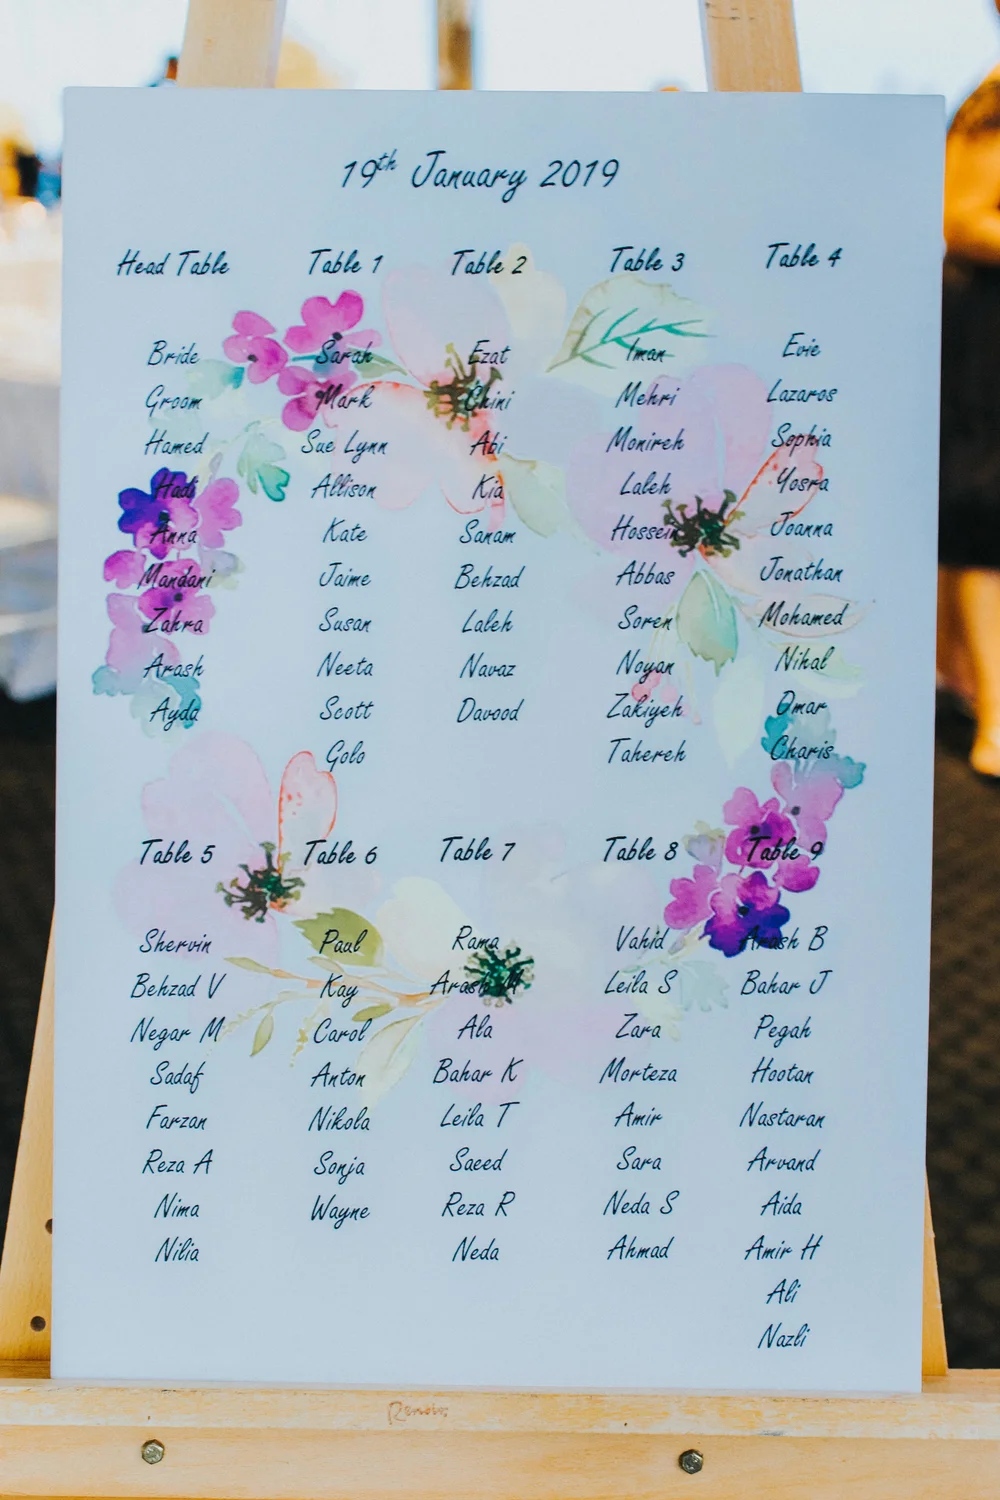 19th January 2019
Head Table
Bride
Groom
Hamed
Hadi
Anna
Mandani
Zahra
Arash
Ayda
Table 1
Sarah
Mark
Sue Lynn
Allison
Kate
Jaime
Susan
Neeta
Scott
Golo
Table 2
Ezat
Chini
Abi
Kia
Sanam
Behzad
Laleh
Navaz
Davood
Table 3
Iman
Mehri
Monireh
Laleh
Hossein
Abbas
Soren
Noyan
Zakiyeh
Tahereh
Table 4
Evie
Lazaros
Sophia
Yosra
Joanna
Jonathan
Mohamed
Nihal
Omar
Charis
Table 5
Shervin
Behzad V
Negar M
Sadaf
Farzan
Reza A
Nima
Nilia
Table 6
Paul
Kay
Carol
Anton
Nikola
Sonja
Wayne
Table 7
Rama
Arash M
Ala
Bahar K
Leila T
Saeed
Reza R
Neda
Table 8
Vahid
Leila S
Zara
Morteza
Amir
Sara
Neda S
Ahmad
Table 9
Arash B
Bahar J
Pegah
Hootan
Nastaran
Arvand
Aida
Amir H
Ali
Nazli